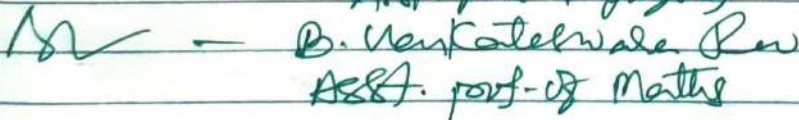 - B. Venkateswara Rao
Asst. prof. of Maths